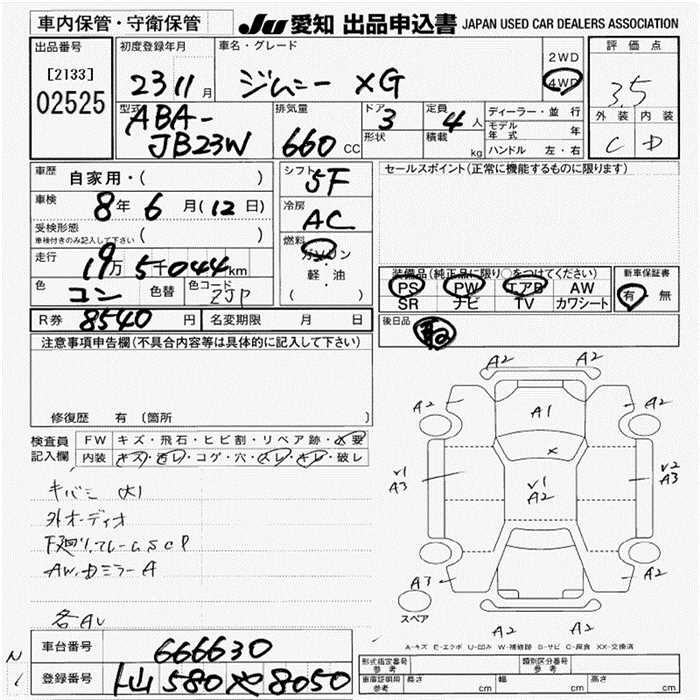 車内保管・守衛保管
JU 愛知 出品申込書 JAPAN USED CAR DEALERS ASSOCIATION
出品番号
[2133]
02525
初度登録年月
23 11月
車名・グレード
ジムニー XG
2WD
4WD
評価点
3.5
外装 内装
C D
型式
ABA-
JB23W
排気量
660 CC
ドア
3
形状
定員
4人
積載
kg
ディーラー・並行
モデル年式 年
ハンドル 左・右
車歴
自家用・( )
車検
8年 6月(12日)
受検形態
車検付きのみ記入して下さい ( )
走行
19万5千044km
色
コン
色替
色コード
ZJP
シフト
5F
冷房
AC
燃料
ガソリン
・
軽・油
( )
R券 8540円
名変期限 月 日
セールスポイント(正常に機能するものに限ります)
装備品(純正品に限り○をつけてください)
PS PW エアB AW
SR ナビ TV カワシート
新車保証書
有・無
後日品
注意事項申告欄(不具合内容等は具体的に記入して下さい)
修復歴 有 〔箇所
検査員
記入欄
FW キズ・飛石・ヒビ割・リペア跡・X要
内装 キズ・汚レ・コゲ・穴・スレ・キレ・破レ
キバミ 大
外オーディオ
下廻り、フレームSCP
AW、ドミラーA
各AU
A2 A2
A2 A1 A2
X
V1
A3
V1
A2
V2
A3
A3 A2
A2 A2
スペア
A-キズ E-エクボ U-凹み W-補修跡 S-サビ C-腐食 XX-交換済
車台番号 666630
登録番号 580 や 8050
形式指定番号
参考
類別区分番号
参考
車庫証明用
参考
長さ cm 幅 cm 高さ cm